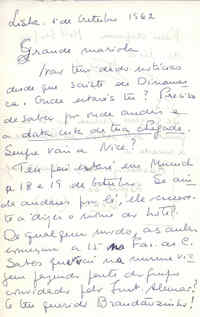 Lisboa, 1 de Outubro 1962
Grande mariola
Não têm dado notícias
desde que saíste da Dinamar-
ca. Onde estarás tu? Preciso
de saber por onde andas e
a data certa da tua chegada.
Sempre vais a Nice?
Teu pai estará em Munich
a 18 e 19 de Outubro. Se ain-
da andares por lá, ele
a dizer o nome do hotel.
De qualquer modo, as aulas
começam a 15 na Fac. de C.
Sabes que vai na mesma via-
gem fazendo parte do grupo
convidado pelo
O teu querido Brandãozinho!